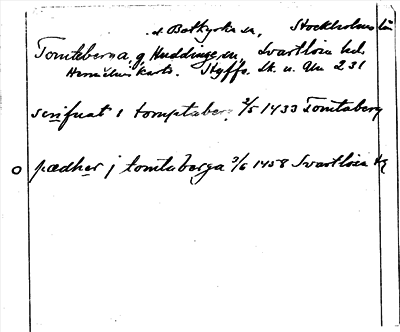 Botkyrka sn, Stockholms län
Tomtaberga, g, Huddinge sn, Svartlösa hd.
Häradskarta. Styffe Sk. u. Un 231
serifuat i tomptaber. 3/5 1433 Tomtaberg
o pædher j tomtaberga 3/6 1458 Svartlösa